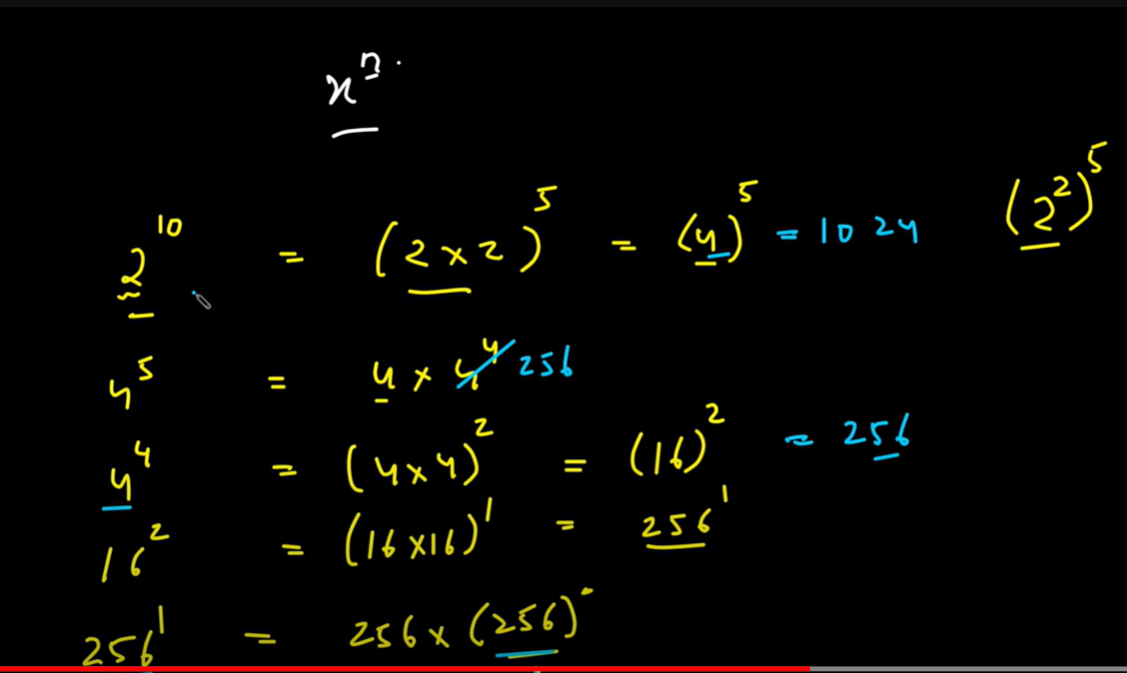 xⁿ.
2¹⁰ = (2 × 2)⁵ = (4)⁵ = 1024 (2²)⁵
4⁵ = 4 × 4⁴ 256
4⁴ = (4×4)² = (16)² = 256
16² = (16×16)¹ = 256¹
256¹ = 256 × (256)⁰